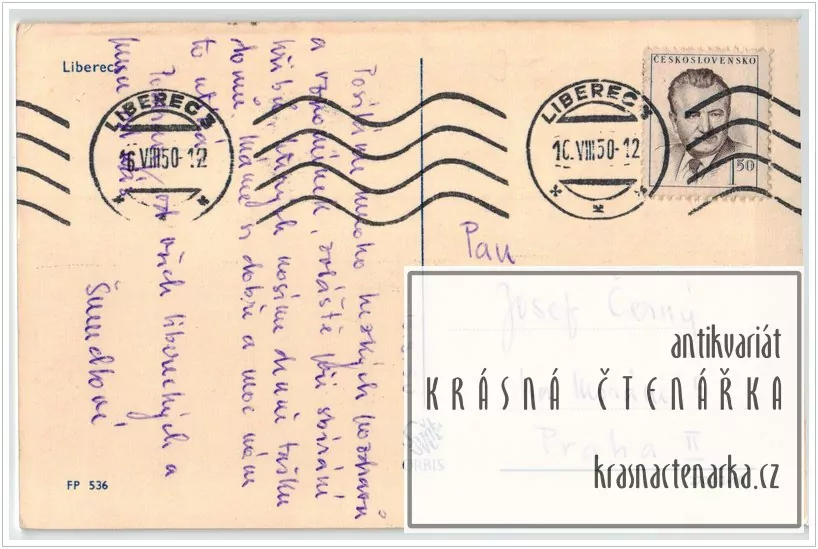 Liberec
LIBEREC 3
16.VIII50-12
LIBEREC 3
16.VIII50-12
ČESKOSLOVENSKO
50
Posíláme mnoho hezkých pozdravů
a vzpomínek, zvláště při sbírání
hřibů, kterých nosíme domů tašku
domů. Máme se dobře a moc nám
to
všech libereckých a
Pan
Josef Černý
Praha II
ORBIS
FP 536
antikvariát
KRÁSNÁ ČTENÁŘKA
krasnactenarka.cz